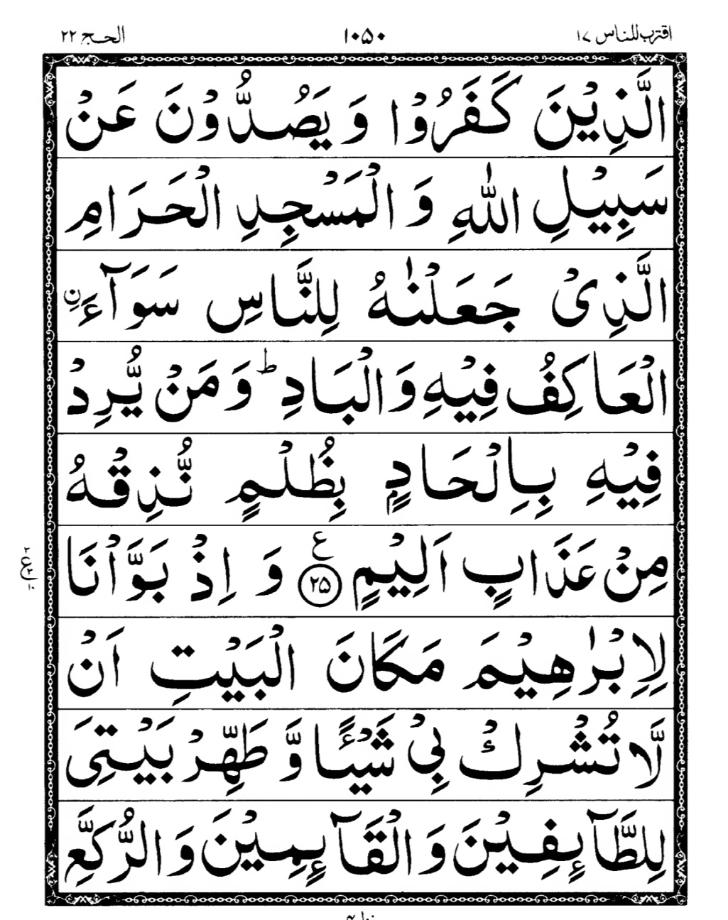 اقترب للناس ۱۷ ۱۰۵۰ الحج ۲۲
الَّذِیْنَ كَفَرُوْا وَ یَصُدُّوْنَ عَنْ
سَبِیْلِ اللّٰهِ وَ الْمَسْجِدِ الْحَرَامِ
الَّذِیْ جَعَلْنٰهُ لِلنَّاسِ سَوَآءَ ِ۟ن
الْعَاكِفُ فِیْهِ وَ الْبَادِ ؕ وَ مَنْ یُّرِدْ
فِیْهِ بِاِلْحَادٍۭ بِظُلْمٍ نُّذِقْهُ
مِنْ عَذَابٍ اَلِیْمٍ ۲۵ ع وَ اِذْ بَوَّاْنَا
لِاِبْرٰهِیْمَ مَكَانَ الْبَیْتِ اَنْ
لَّا تُشْرِكْ بِیْ شَیْـًٔا وَّ طَهِّرْ بَیْتِیَ
لِلطَّآىِٕفِیْنَ وَ الْقَآىِٕمِیْنَ وَ الرُّكَّعِ